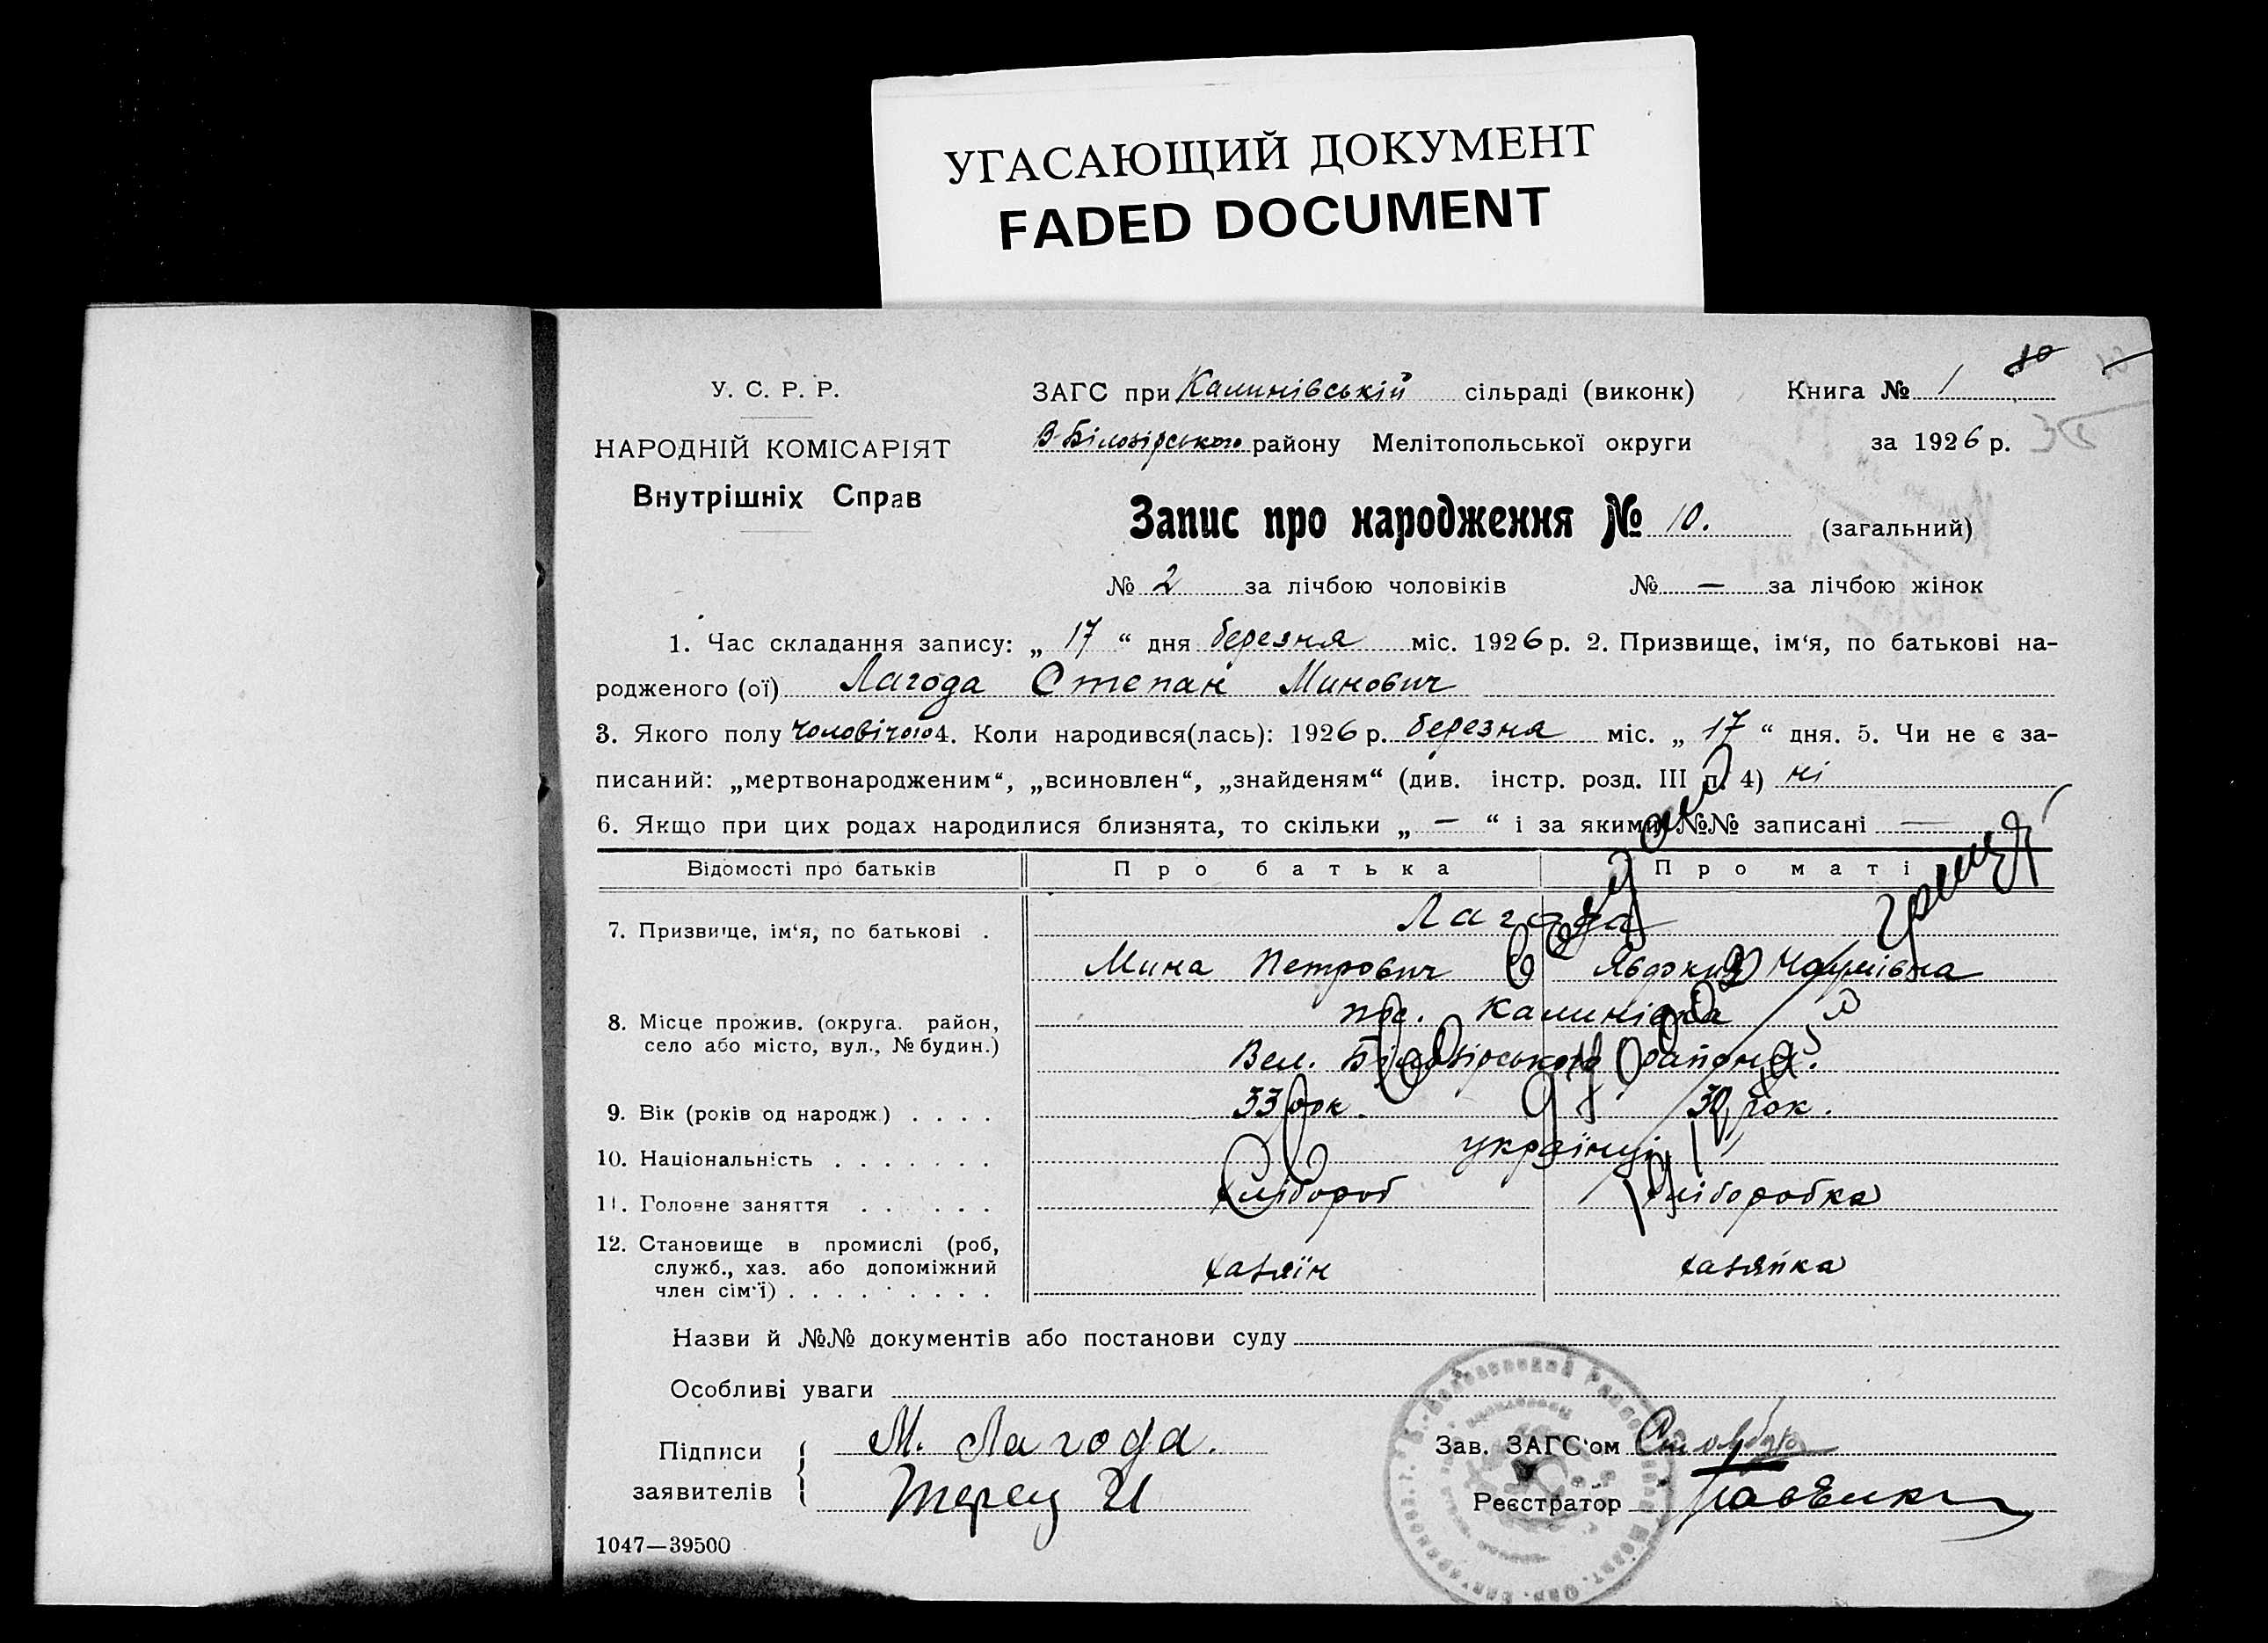 УГАСАЮЩИЙ ДОКУМЕНТ
FADED DOCUMENT
У. С. Р. Р.
НАРОДНІЙ КОМІСАРІЯТ
Внутрішніх Справ
ЗАГС при Калинівській сільраді (виконк) Книга № 1
В-Білозірського району Мелітопольської округи за 1926 р.
Запис про народження № 10. (загальний)
№ 2 за лічбою чоловіків № — за лічбою жінок
1. Час складання запису: „ 17 “ дня березня міс. 1926 р. 2. Призвище, ім‘я, по батькові на-
родженого (ої) Лагода Степан Минович
3. Якого полу чоловічого 4. Коли народився(лась): 1926 р. березня міс. „ 17 “ дня. 5. Чи не є за-
писаний: „мертвонародженим“, „всиновлен“, „знайденям“ (див. інстр. розд. III п. 4) ні
6. Якщо при цих родах народилися близнята, то скільки „ — “ і за якими №№ записані —
Відомості про батьків Про батька Про маті
7. Призвище, ім‘я, по батькові . Лагода
Мина Петрович Явдокия Наумівна
8. Місце прожив. (округа. район, село або місто, вул., № будин.) Калинівка
Вел. Білозірського району.
9. Вік (років од народж.) . . . . 33 рок. 30 рок.
10. Національність . . . . . . . українці
11. Головне заняття . . . . . . хлібороб хліборобка
12. Становище в промислі (роб, служб., хаз. або допоміжний член сім‘ї) . . . . . . . . . хазяїн хазяйка
Назви й №№ документів або постанови суду
Особливі уваги
Підписи заявителів М. Лагода.
Зав. ЗАГС‘ом
Реєстратор
1047—39500